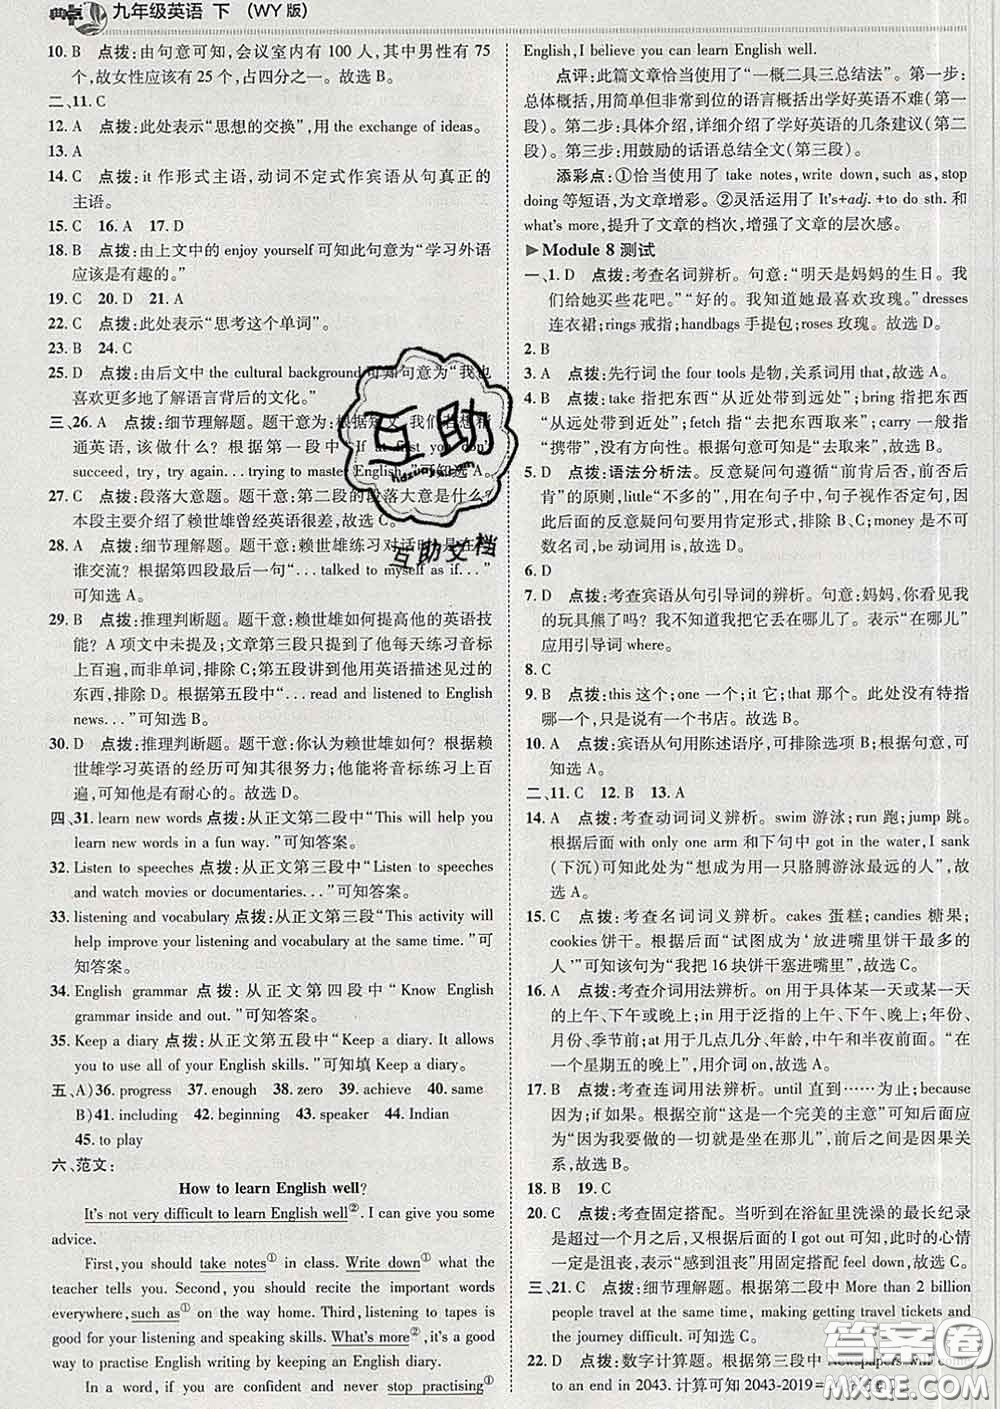 典中点 九年级英语 下 (WY 版)
10. B 点拨:由句意可知,会议室内有 100 人,其中男性有 75
个,故女性应该有 25 个,占四分之一。故选 B。
二、11. C
12. A 点拨:此处表示“思想的交换”,用 the exchange of ideas。
13. A
14. C 点拨:it 作形式主语,动词不定式作宾语从句真正的
主语。
15. C 16. A 17. D
18. B 点拨:由上文中的 enjoy yourself 可知此句意为“学习外语
应该是有趣的。”
19. C 20. D 21. A
22. C 点拨:此处表示“思考这个单词”。
23. B 24. C
25. D 点拨:由后文中 the cultural background 可知句意为“我也
喜欢更多地了解语言背后的文化。”
三、26. A 点拨:细节理解题。题干意为:根据短文,我们若想精
通英语,该做什么? 根据第一段中“If at first you don't
succeed, try, try again. . . trying to master English.”可知选 A。
27. C 点拨:段落大意题。题干意:第二段的段落大意是什么?
本段主要介绍了赖世雄曾经英语很差,故选 C。
28. A 点拨:细节理解题。题干意:赖世雄练习对话时是在和
谁交流? 根据第四段最后一句“. . . talked to myself as if. . .”
可知选 A。
29. B 点拨:推理判断题。题干意:赖世雄如何提高他的英语技
能? A 项文中未提及;文章第三段只提到了他每天练习音标
上百遍,而非单词,排除 C;第五段讲到他用英语描述见过的
东西,排除 D。根据第五段中“. . . read and listened to English
news. . .”可知选 B。
30. D 点拨:推理判断题。题干意:你认为赖世雄如何? 根据赖
世雄学习英语的经历可知其具体情况;他能将音标练习上百
遍,可知他是有耐心的。故选 D。
四、31. learn new words 点拨:从正文第二段中“This will help you
learn new words in a fun way. ”可知答案。
32. Listen to speeches 点拨:从正文第三段中“Listen to speeches
and watch movies or documentaries. . .”可知答案。
33. listening and vocabulary 点拨:从正文第三段“This activity will
help improve your listening and vocabulary at the same time. ”可
知答案。
34. English grammar 点拨:从正文第四段中“Know English
grammar inside and out. ”可知答案。
35. Keep a diary 点拨:从正文第五段中“Keep a diary. It allows
you to use all of your English skills. ”可知填 Keep a diary。
五、A)36. progress 37. enough 38. zero 39. achieve 40. same
B)41. including 42. beginning 43. speaker 44. Indian
45. to play
六、范文:
How to learn English well?
It's not very difficult to learn English well②. I can give you some
advice.
First, you should take notes① in class. Write down① what the
teacher tells you. Second, you should recite the important words
everywhere, such as① on the way home. Third, listening to tapes is
good for your listening and speaking skills. What's more②, it's a good
way to practise English writing by keeping an English diary.
In a word, if you are confident and never stop practising①
English, I believe you can learn English well.
点评:此篇文章恰当使用了“一概二具三总结法”。第一步:
总体概括,用简单但非常到位的语言概括出学好英语不难(第一
段)。第二步:具体介绍,详细介绍了学好英语的几条建议(第二
段)。第三步:用鼓励的话语总结全文(第三段)。
添彩点:①恰当使用了 take notes, write down, such as, stop
doing 等短语,为文章增彩。②灵活运用了 It's+adj. +to do sth. 和
what's more,提升了文章的档次,增强了文章的层次感。
▶Module 8 测试
一、1. D 点拨:考查名词辨析。句意:“明天是妈妈的生日。我
们给她买些花吧。”“好的。我知道她最喜欢玫瑰。”dresses
连衣裙;rings 戒指;handbags 手提包;roses 玫瑰。故选 D。
2. B
3. A 点拨:先行词 the four tools 是物,关系词用 that,故选 A。
4. B 点拨:take 指把东西“从近处带到远处”;bring 指把东西
“从远处带到近处”;fetch 指“去把东西拿来”;carry 一般指
“携带”,没有方向性。根据句意可知是“去取来”,故选 B。
5. D 点拨:语法分析法。反意疑问句遵循“前肯后否,前否后
肯”的原则,little“不多的”,用在句子中,句子视作否定形式,
因此后面的反意疑问句要用肯定形式,排除 B、C;money 是不
可数名词,be 动词用 is。故选 D。
6. D
7. D 点拨:考查宾语从句引导词的辨析。句意:妈妈,你看见我
的玩具熊了吗? 我不知道我把它丢在哪儿了。表示“在哪儿”
应用引导词 where。
8. C
9. B 点拨:this 这个;one 一个;it 它;that 那个。此处没有特指
哪一个,只是说有一个书店。故选 B。
10. A 点拨:宾语从句用陈述语序,可排除选项 B;根据句意,可
知选 A。
二、11. C 12. B 13. A
14. A 点拨:考查动词词义辨析。swim 游泳;run 跑;jump 跳。
根据后面 with only one arm 和下句中 got in the water, I sank
(下沉)可知此处为“想成为一只胳膊游泳最远的人”,故
选 A。
15. C 点拨:考查名词词义辨析。cakes 蛋糕;candies 糖果;
cookies 饼干。根据后面“试图成为‘放进嘴里饼干最多的
人’”可知该句为“我把 16 块饼干塞进嘴里”,故选 C。
16. A 点拨:考查介词用法辨析。on 用于具体某一天或某一天
的上午、下午、晚上;in 用于泛指的上午、下午、晚上;年份、
月份、季节前;at 用于几点几分、年龄,中午和半夜前面。“在
一个星期五的晚上”,用介词 on,故选 A。
17. B 点拨:考查连词用法辨析。until 直到……为止;because
因为;if 如果。根据空前“这是一个完美的主意”可知后面应
为“因为我要做的一切就是坐在那儿”,前后句意是因果关
系,故选 B。
18. B 19. C
20. C 点拨:考查固定搭配。当听到在浴缸里洗澡的最长纪录
是超过一个月之后,又根据后面的 I got out 可知,此时的心情
一定是沮丧,表示“感到沮丧”应用固定搭配 feel down,故选 C。
三、21. C 点拨:细节理解题。根据第二段中 More than 2 billion
people travel at the same time, making getting travel tickets and
the journey difficult. 可知选 C。
22. D 点拨:数字计算题。根据第三段中 Newspapers will come
to an end in 2043. 计算可知 2043-2019=
互助
huzuoye.com
互助文档
答案圈